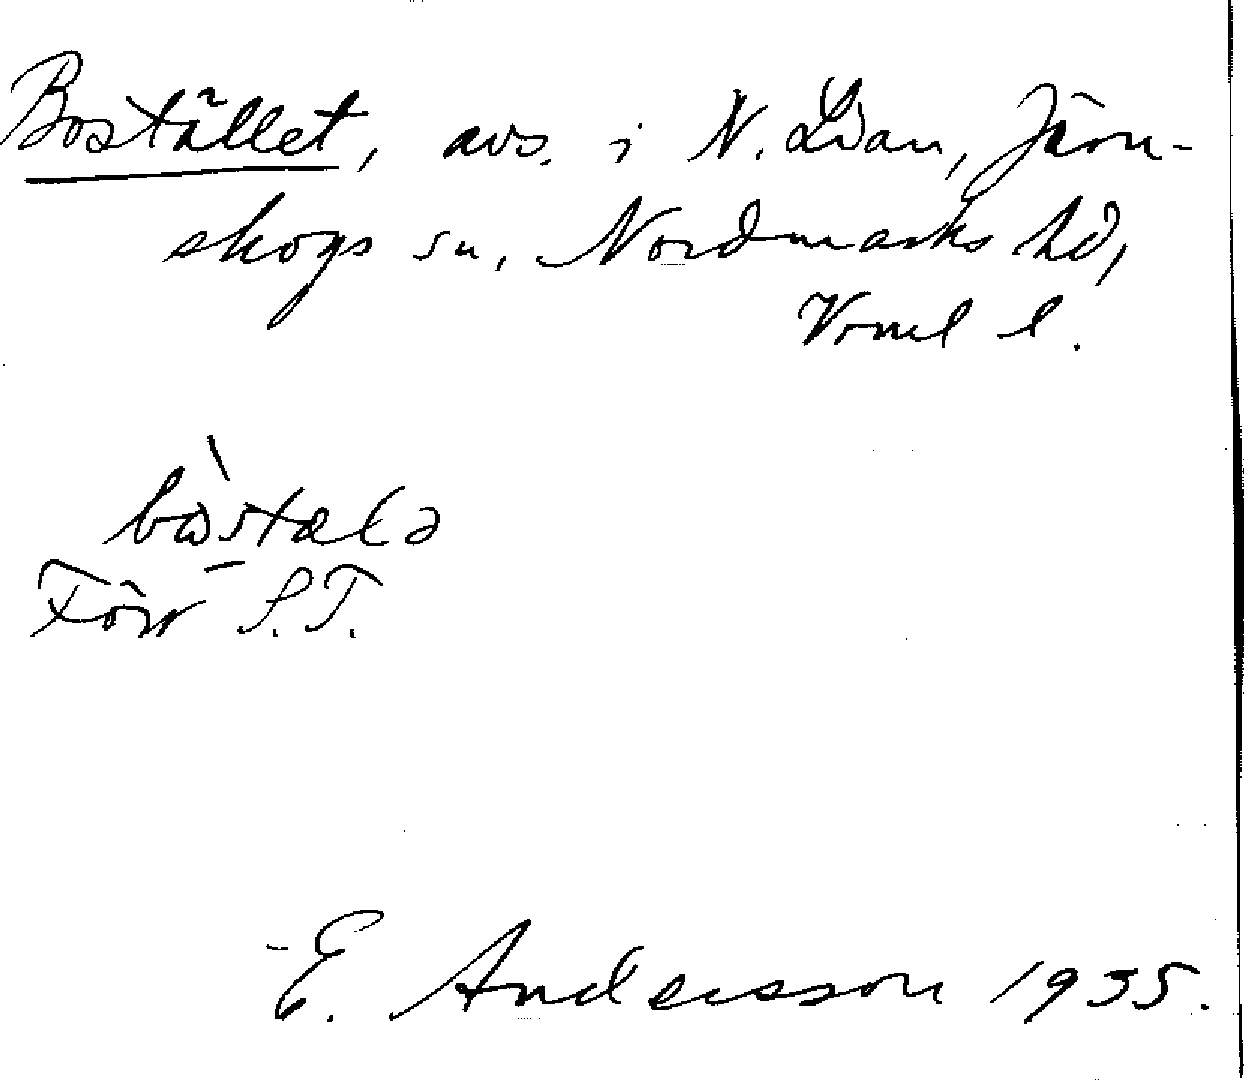 Bostället, avs. i N. Lian, Järn-
skogs sn, Nordmarks hd,
Vrml l.
bòstælə
Förr S.T.
E. Andersson 1935.